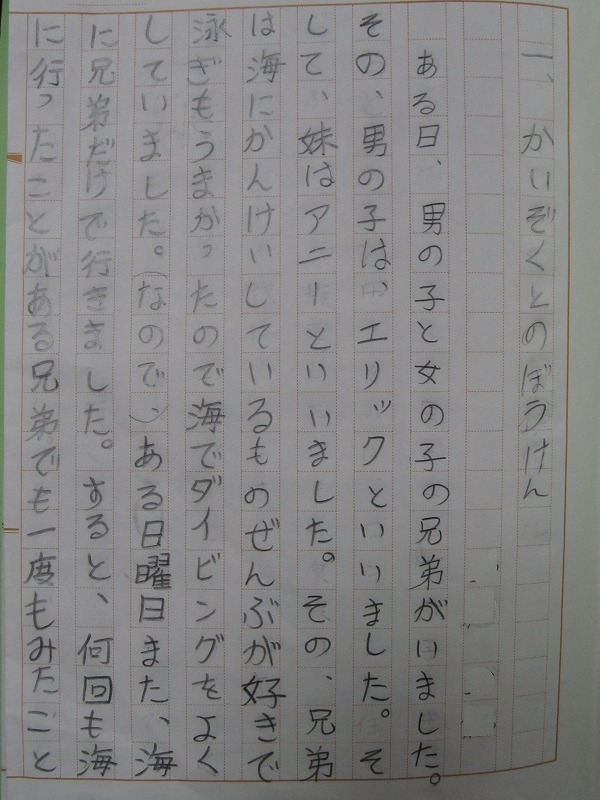 一、かいぞくとのぼうけん
ある日、男の子と女の子の兄弟がいました。
その、男の子は、エリックといいました。そ
して、妹はアニーといいました。その、兄弟
は海にかんけいしているものぜんぶが好きで
泳ぎもうまかったので海でダイビングをよく
していました。（なので、）ある日曜日また、海
に兄弟だけで行きました。すると、何回も海
に行ったことがある兄弟でも一度もみたこと